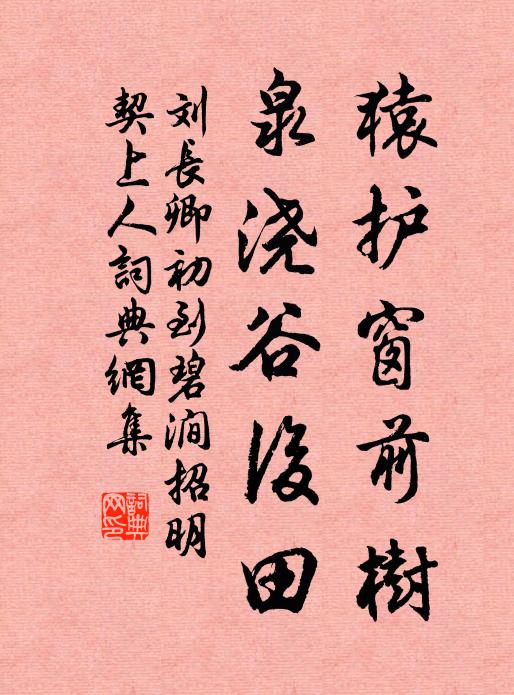 猿护窗前樹
泉浇谷後田
刘長卿初到碧澗招明
契上人詞典網集
詞典网印